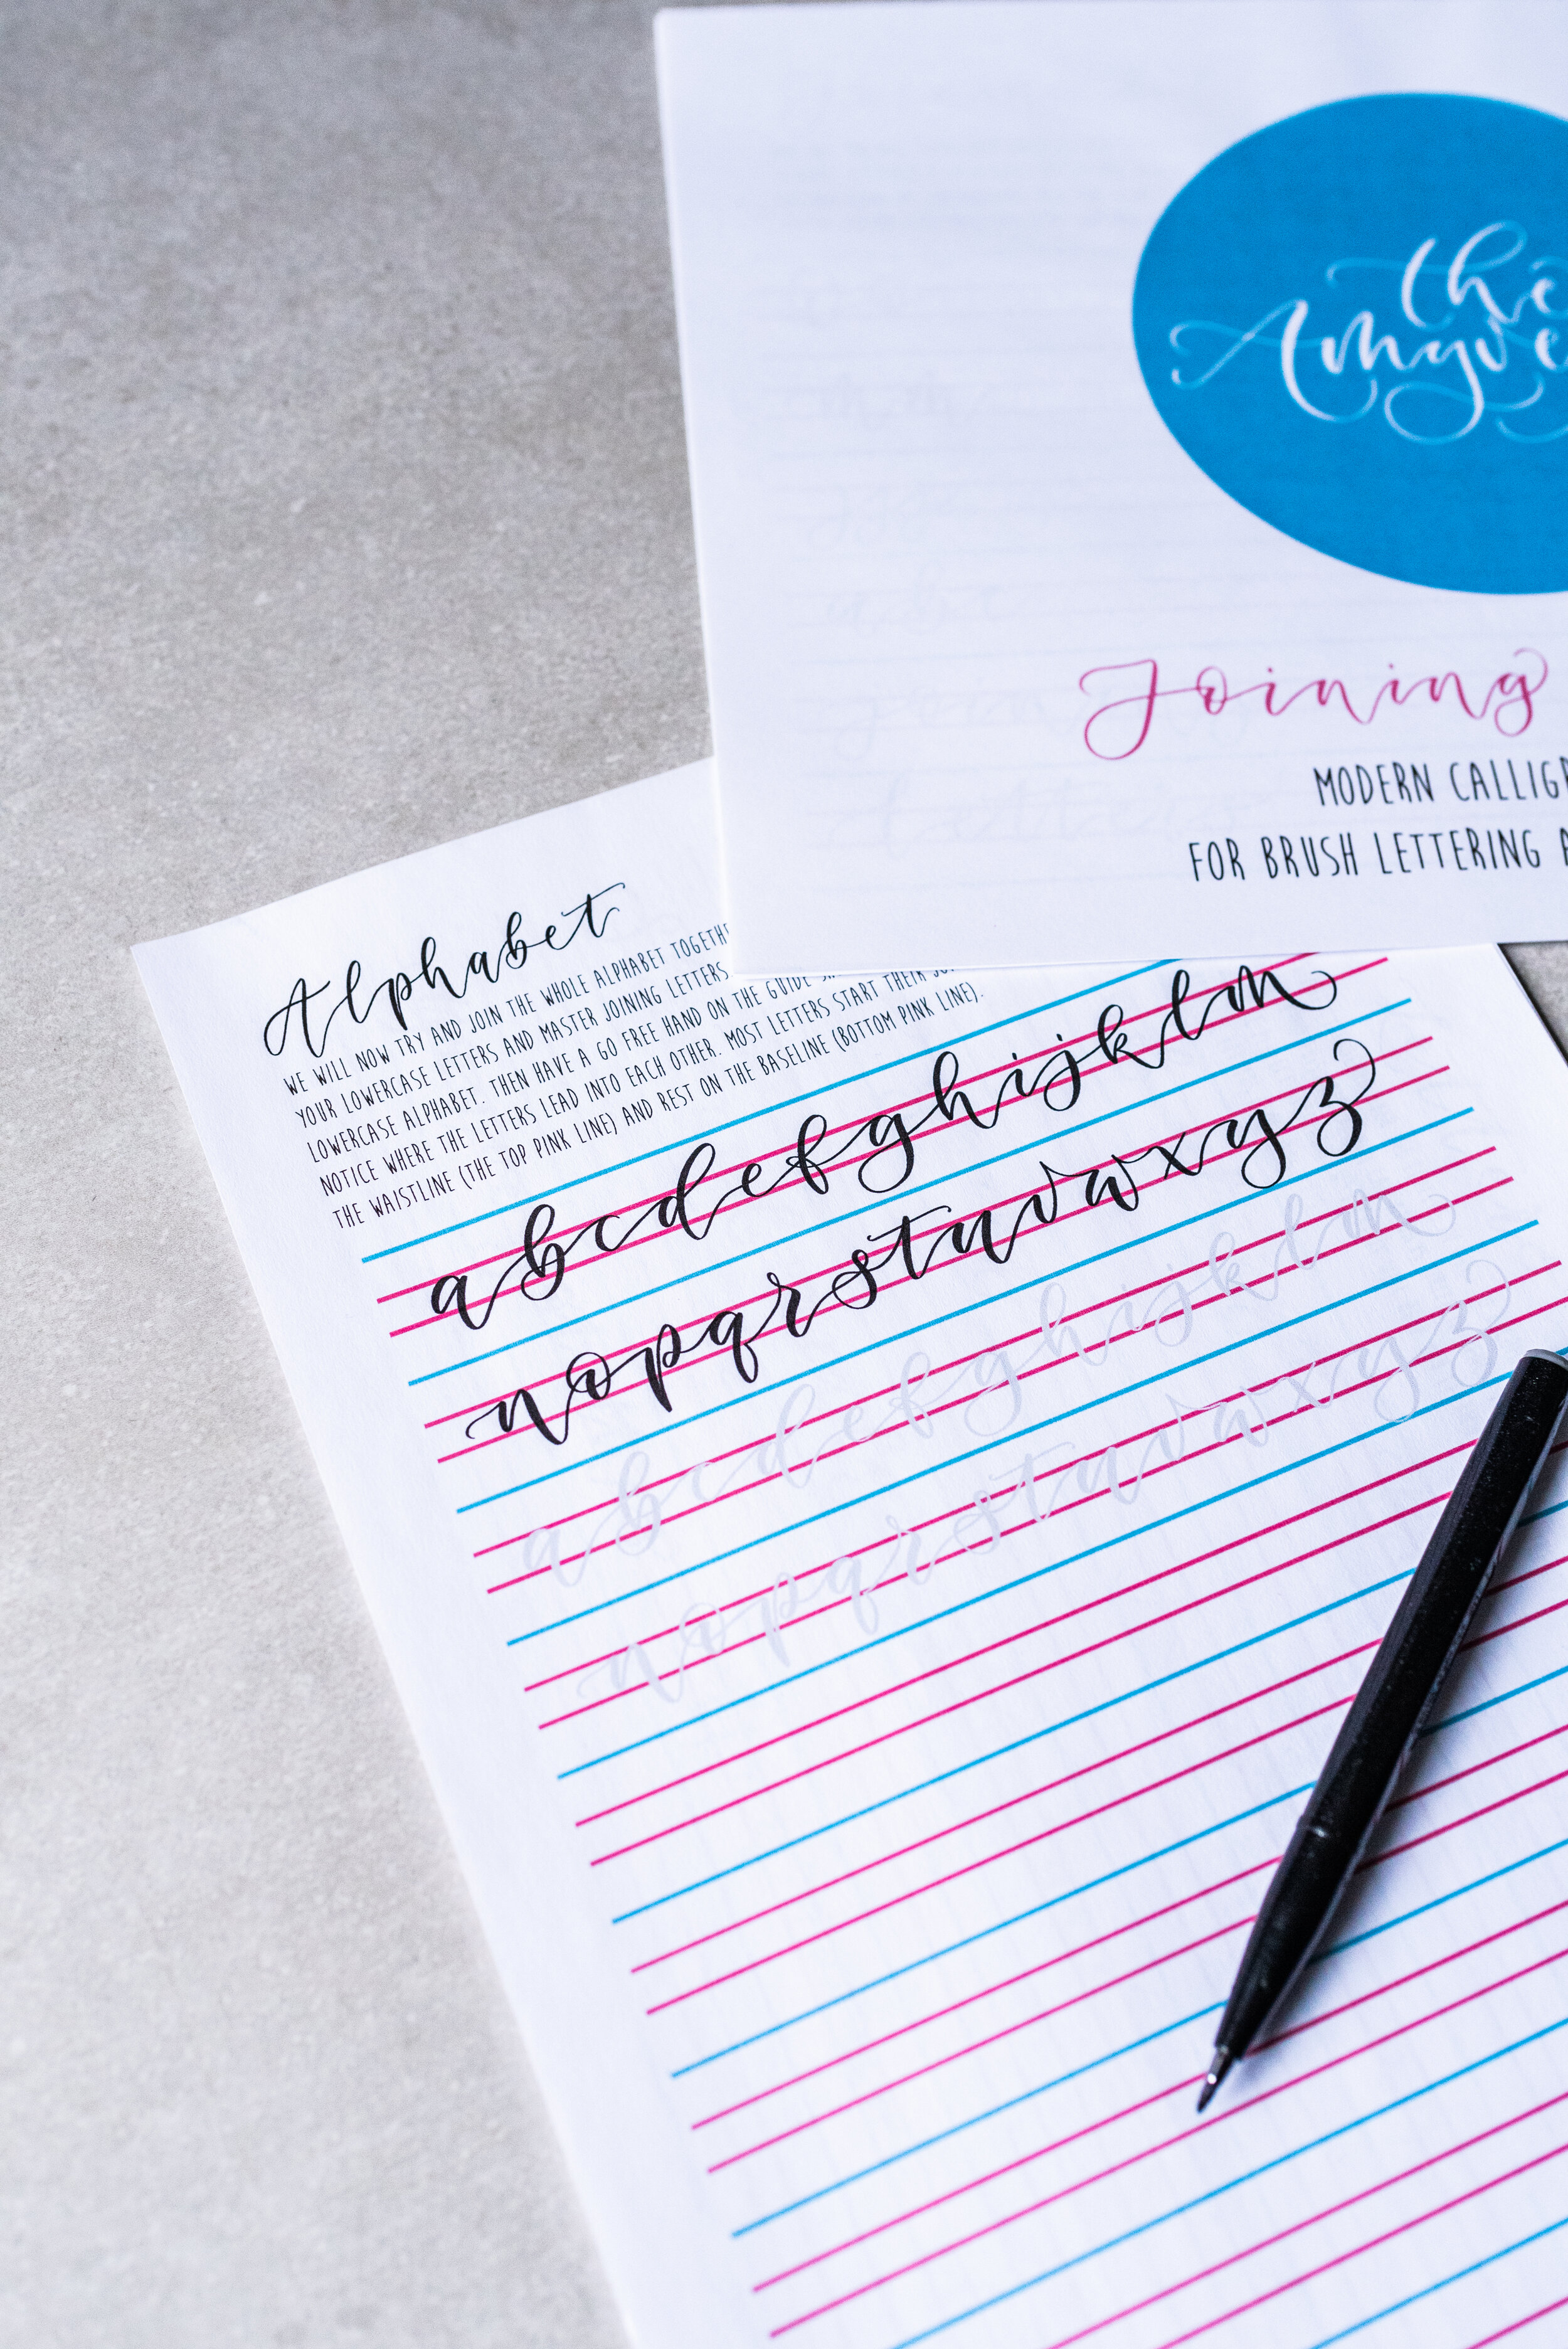 the
Joining
MODERN
FOR BRUSH LETTERING
Alphabet
WE WILL NOW TRY AND JOIN THE WHOLE ALPHABET
YOUR LOWERCASE LETTERS AND MASTER JOINING LETTERS
LOWERCASE ALPHABET. THEN HAVE A GO FREE HAND ON THE GUIDE
NOTICE WHERE THE LETTERS LEAD INTO EACH OTHER. MOST LETTERS START THEIR
THE WAISTLINE (THE TOP PINK LINE) AND REST ON THE BASELINE (BOTTOM PINK LINE).
abcdefghijklm
nopqrstuvwxyz
abcdefghijklm
nopqrstuvwxyz